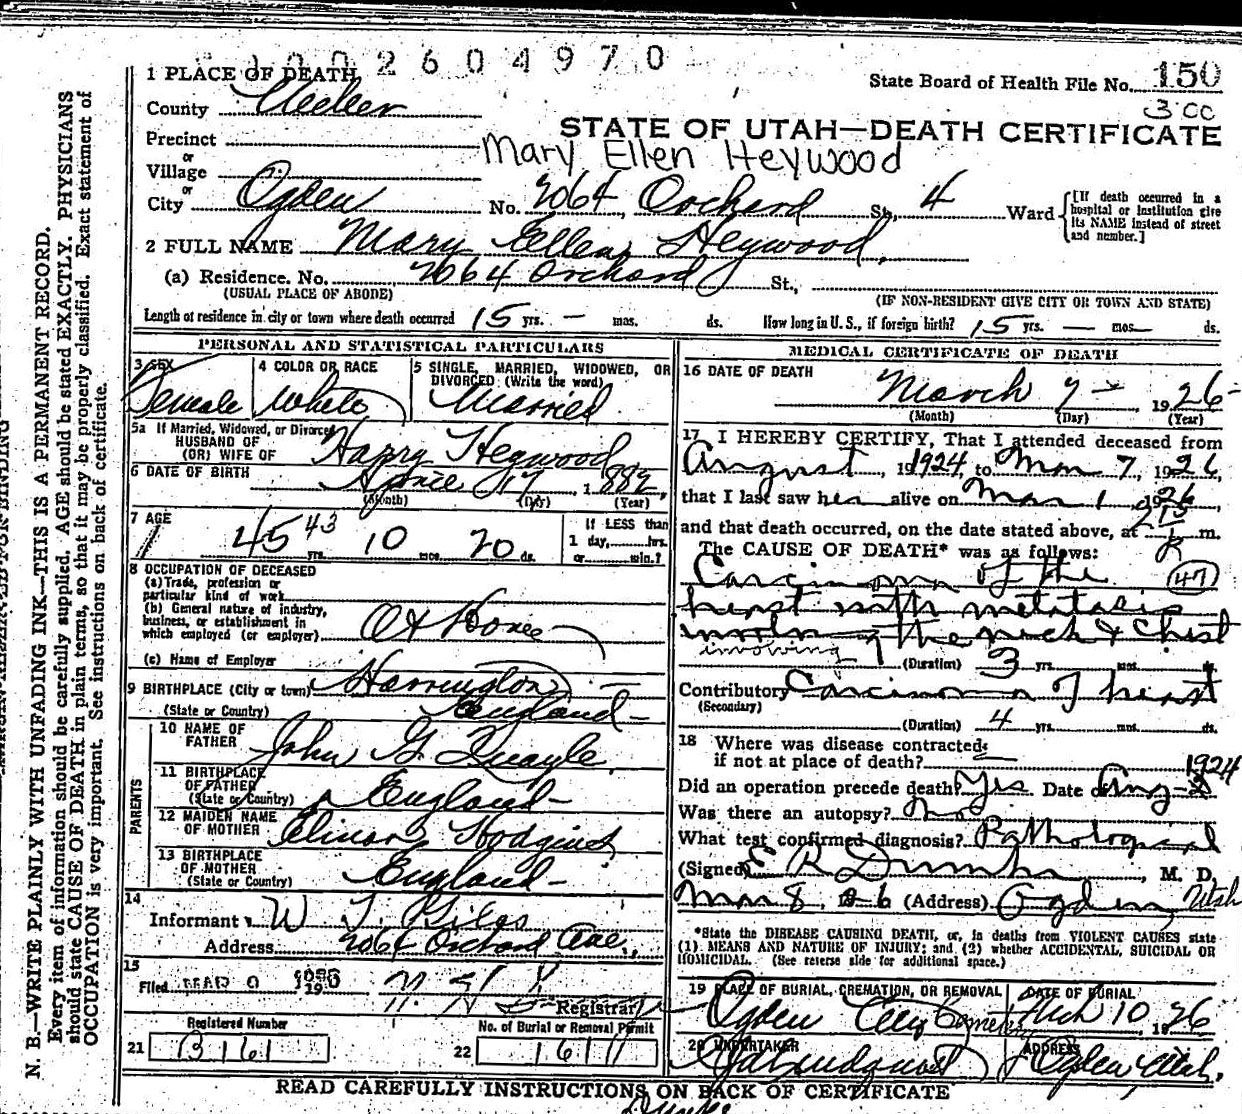 1002604970
1 PLACE OF DEATH
State Board of Health File No. 150
County Weber
300
STATE OF UTAH—DEATH CERTIFICATE
Precinct
Mary Ellen Heywood
or
Village
or
City Ogden No. 2064 Orchard St., 4 Ward
[If death occurred in a hospital or institution give its NAME instead of street and number.]
2 FULL NAME Mary Ellen Heywood
(a) Residence. No. 2064 Orchard St.,
(USUAL PLACE OF ABODE) (IF NON-RESIDENT GIVE CITY OR TOWN AND STATE)
Length of residence in city or town where death occurred 15 yrs. — mos. ds. How long in U. S., if foreign birth? 15 yrs. — mos. ds.
PERSONAL AND STATISTICAL PARTICULARS
3 SEX Female
4 COLOR OR RACE White
5 SINGLE, MARRIED, WIDOWED, OR DIVORCED (Write the word) Married
5a If Married, Widowed, or Divorced
HUSBAND OF
(OR) WIFE OF Harry Heywood
6 DATE OF BIRTH April 17, 1882
(Month) (Day) (Year)
7 AGE 45 43 yrs. 10 mos. 20 ds.
If LESS than
1 day, hrs.
or min.?
8 OCCUPATION OF DECEASED
(a) Trade, profession or
particular kind of work
(b) General nature of industry,
business, or establishment in
which employed (or employer) At Home
(c) Name of Employer
9 BIRTHPLACE (City or town) Harrington
(State or Country) England
PARENTS
10 NAME OF
FATHER John G. Quayle
11 BIRTHPLACE
OF FATHER
(State or Country) England
12 MAIDEN NAME
OF MOTHER Elinor
13 BIRTHPLACE
OF MOTHER
(State or Country) England
14
Informant W. J.
Address 2064 Orchard Ave.
15
Filed MAR 9 1926
Registrar
Registered Number
No. of Burial or Removal Permit
21 B161
22 1611
MEDICAL CERTIFICATE OF DEATH
16 DATE OF DEATH
March 7 — 1926
(Month) (Day) (Year)
17 I HEREBY CERTIFY, That I attended deceased from
August, 1924, to Mar 7, 1926,
that I last saw her alive on Mar 1, 1926
and that death occurred, on the date stated above, at 215 P m.
The CAUSE OF DEATH* was as follows:
Carcinoma of the 47
breast with metatasis
involving the neck & chest
involving
(Duration) 3 yrs. mos. ds.
Contributory Carcinoma of breast
(Secondary)
(Duration) 4 yrs. mos. ds.
18 Where was disease contracted
if not at place of death?
1924
Did an operation precede death? Yes. Date of Aug-
Was there an autopsy? No
What test confirmed diagnosis? Pathological
(Signed) E R Dumke, M. D.
Mar 8, 1926 (Address) Ogden, Utah
*State the DISEASE CAUSING DEATH, or, in deaths from VIOLENT CAUSES state
(1) MEANS AND NATURE OF INJURY; and (2) whether ACCIDENTAL, SUICIDAL OR
HOMICIDAL. (See reverse side for additional space.)
19 PLACE OF BURIAL, CREMATION, OR REMOVAL
Ogden City Cemetery
DATE OF BURIAL
Mch 10 1926
20 UNDERTAKER
ADDRESS
Ogden Utah.
READ CAREFULLY INSTRUCTIONS ON BACK OF CERTIFICATE
Dumke
N. B.—WRITE PLAINLY WITH UNFADING INK—THIS IS A PERMANENT RECORD.
Every item of information should be carefully supplied. AGE should be stated EXACTLY. PHYSICIANS
should state CAUSE OF DEATH in plain terms, so that it may be properly classified. Exact statement of
OCCUPATION is very important. See instructions on back of certificate.